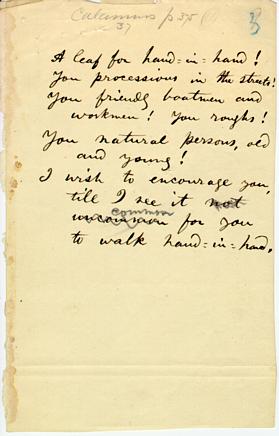 Calamus p 375
37
A leaf for hand=in=hand!
You processions in the streets!
You friendly boatmen and
workmen! You roughs!
You natural persons, old
and young!
I wish to encourage you,
till I see it not
common
uncommon for you
to walk hand=in=hand.